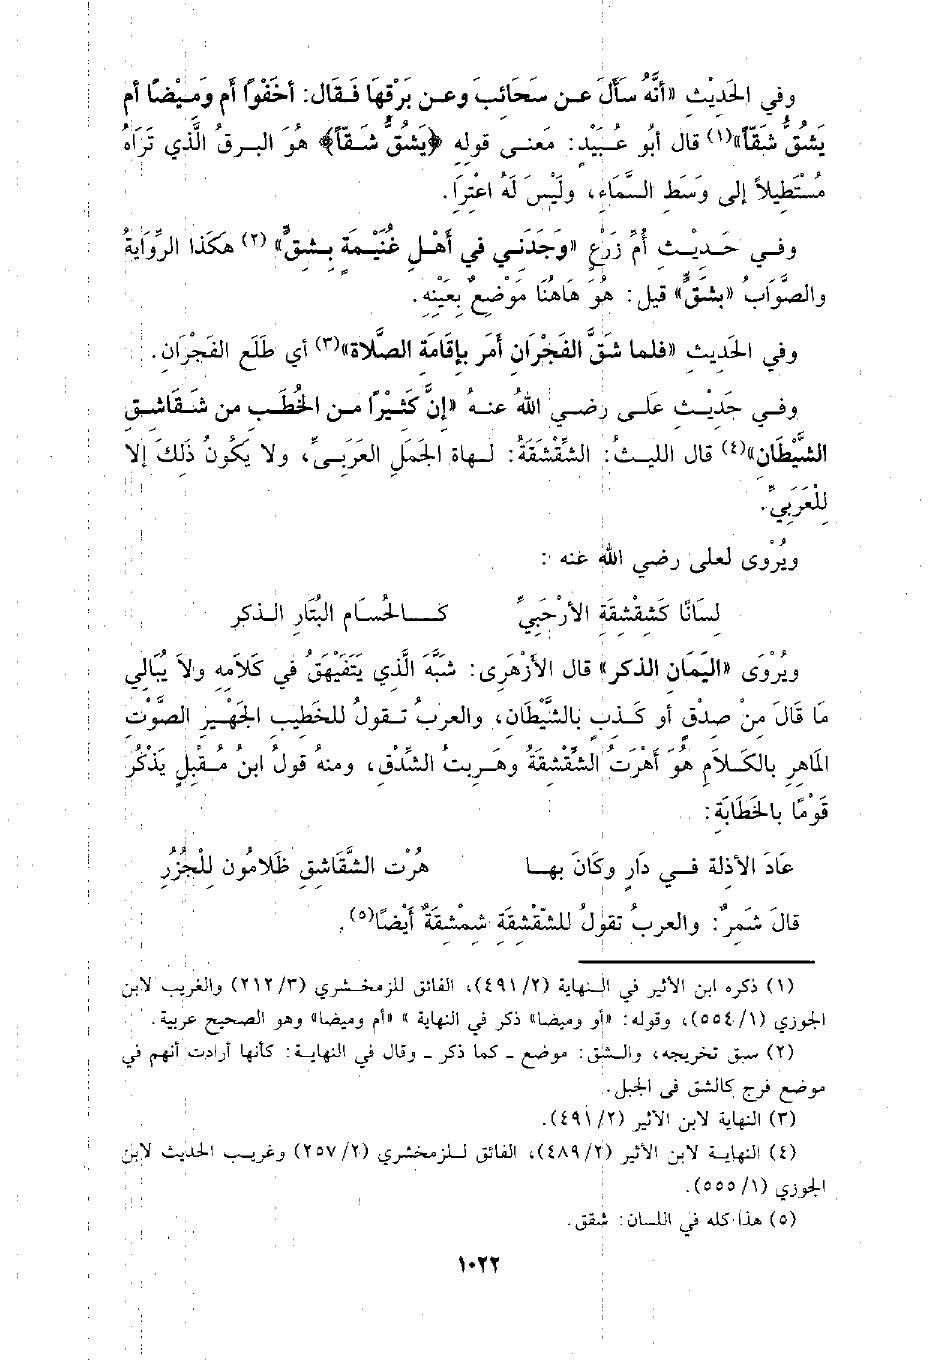 وفي الحَدِيْث «أنَّهُ سَأَلَ عـن سَحَائبَ وعـن بَرْقِهَا فَـقَال: أخَفْوًا أم وَمِيْضًا أم
يَشُقُّ شَقّاً»(١) قال أبُو عُـبَيْدٍ: مَعنـى قولِه ﴿يَشُقُّ شَـقّاً﴾ هُوَ البـرقُ الَّذي تَرَاهُ
مُسْتَطِيلاً إلى وَسَطِ الـسَّمَاءِ، ولَيْسَ لَهُ اعْتِرَا.
وفـي حَـدِيْـثِ أُمِّ زَرْعٍ «وَجَدَني في أهْـلِ غُنَيْـمَةٍ بـشِقٍّ» (٢) هكَذا الرِّوَايَةُ
والصَّوَابُ «بشَقٍّ» قيل: هُوَ هَاهُنَا مَوْضِعٌ بِعَيْنِهِ.
وفي الحَدِيث «فلما شَقَّ الفَجْرَان أمَر بإقَامَة الصَّلَاة»(٣) أي طَلَع الفَجْرَان.
وفـي حَدِيْـث عَلـى رضـي اللهُ عنـهُ «إنَّ كَثِيْرًا مـن الخُطَـب من شَـقَاشِـق
الشَّيْطَان»(٤) قال الليـثُ: الشِّقْشِقَةُ: لـهاة الجَمَلِ العَرَبـىِّ، ولا يكُونُ ذَلكَ إلا
لِلْعَرَبِيِّ.
ويُرْوى لعلى رضي الله عنه :
لِسَانًا كَشِقْشِقَةِ الأرْحَبِيِّ كـــالحُسَـام البُتَارِ الـذكرِ
ويُرْوَى «اليَمَان الذكر» قال الأزْهَرِى: شَبَّهَ الَّذي يَتَفَيْهَقُ في كَلَامِهِ ولاَ يُبَالي
مَا قَالَ مِنْ صِدْقٍ أو كَـذِبٍ بالشَّيْطَان، والعربُ تـقولُ للخَطِيب الجَهْيـرِ الصَّوْت
المَاهِرِ بالكَـلاَمِ هُوَ أهْرَتُ الشِّقْشِقَةُ وهَـرِيتُ الشِّدْقِ، ومنهُ قولُ ابنُ مُـقْبِلٍ يَذْكُرُ
قَومًا بالخَطَابَةِ:
عَادَ الأذلةَ فـي دَارٍ وكَانَ بهـا هُرْت الشَّقَاشِقِ ظَلامُون لِلْجُزُرِ
قالَ شَمِرٌ: والعربُ تقولُ للشِّقْشِقَةِ شِمْشِقَةٌ أيْضًا(٥).
(١) ذكره ابن الأثير في الـنهاية (٢/ ٤٩١)، الفائق للزمخـشري (٣/ ٢١٢) والغريب لابن
الجوزي (١/ ٥٥٤)، وقوله: «أو وميضا» ذكر في النهاية » «أم وميضا» وهو الصحيح عربية.
(٢) سبق تخريجه، والـشق: موضع ـ كما ذكر ـ وقال في النهايـة: كأنها أرادت أنهم في
موضع فرج كالشق فى الجبل.
(٣) النهاية لابن الأثير (٢/ ٤٩١).
(٤) النهايـة لابن الأثير (٢/ ٤٨٩)، الفائق لـلزمخشري (٢/ ٢٥٧) وغريـب الحديث لابن
الجوزي (١/ ٥٥٥).
(٥) هذا كله في اللسان: شقق.
١٠٢٢